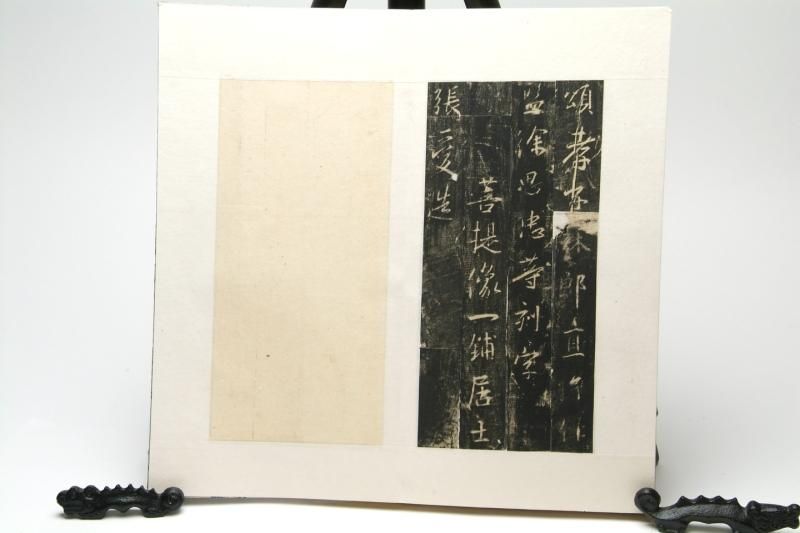 頌孝
郎直
監徐思忠等刻字
菩提像一鋪居士
張愛造